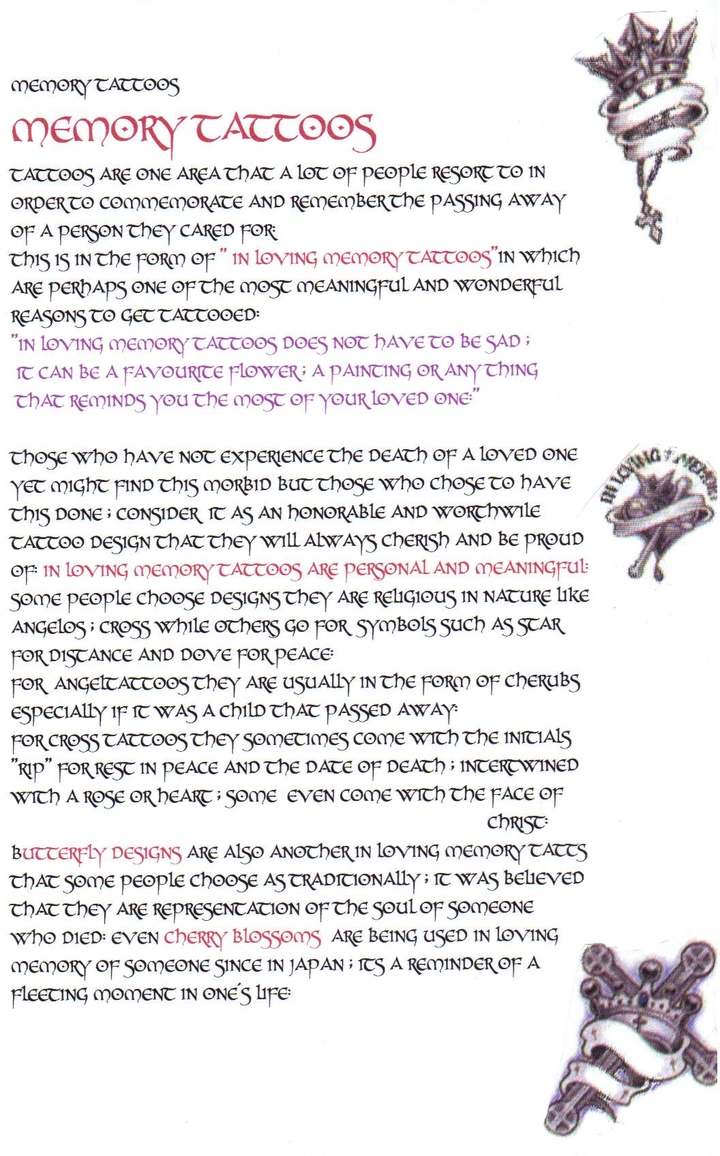 MEMORY TATTOOS
MEMORY TATTOOS
TATTOOS ARE ONE AREA THAT A LOT OF PEOPLE RESORT TO IN
ORDER TO COMMEMORATE AND REMEMBER THE PASSING AWAY
OF A PERSON THEY CARED FOR:
THIS IS IN THE FORM OF " IN LOVING MEMORY TATTOOS"IN WHICH
ARE PERHAPS ONE OF THE MOST MEANINGFUL AND WONDERFUL
REASONS TO GET TATTOOED:
"IN LOVING MEMORY TATTOOS DOES NOT HAVE TO BE SAD ;
IT CAN BE A FAVOURITE FLOWER ; A PAINTING OR ANY THING
THAT REMINDS YOU THE MOST OF YOUR LOVED ONE:"
THOSE WHO HAVE NOT EXPERIENCE THE DEATH OF A LOVED ONE
YET MIGHT FIND THIS MORBID BUT THOSE WHO CHOSE TO HAVE
THIS DONE ; CONSIDER IT AS AN HONORABLE AND WORTHWILE
TATTOO DESIGN THAT THEY WILL ALWAYS CHERISH AND BE PROUD
OF: IN LOVING MEMORY TATTOOS ARE PERSONAL AND MEANINGFUL:
SOME PEOPLE CHOOSE DESIGNS THEY ARE RELIGIOUS IN NATURE LIKE
ANGELOS ; CROSS WHILE OTHERS GO FOR SYMBOLS SUCH AS STAR
FOR DISTANCE AND DOVE FOR PEACE:
FOR ANGELTATTOOS THEY ARE USUALLY IN THE FORM OF CHERUBS
ESPECIALLY IF IT WAS A CHILD THAT PASSED AWAY:
FOR CROSS TATTOOS THEY SOMETIMES COME WITH THE INITIALS
"RIP" FOR REST IN PEACE AND THE DATE OF DEATH ; INTERTWINED
WITH A ROSE OR HEART ; SOME EVEN COME WITH THE FACE OF
CHRIST:
BUTTERFLY DESIGNS ARE ALSO ANOTHER IN LOVING MEMORY TATTS
THAT SOME PEOPLE CHOOSE AS TRADITIONALLY ; IT WAS BELIEVED
THAT THEY ARE REPRESENTATION OF THE SOUL OF SOMEONE
WHO DIED: EVEN CHERRY BLOSSOMS ARE BEING USED IN LOVING
MEMORY OF SOMEONE SINCE IN JAPAN ; ITS A REMINDER OF A
FLEETING MOMENT IN ONE'S LIFE:
IN LOVING MEMORY